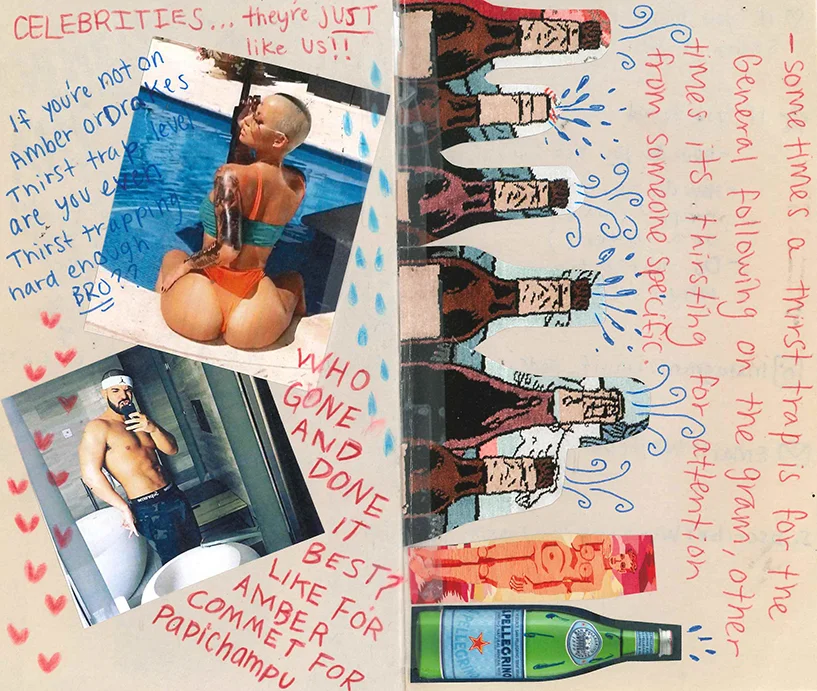 CELEBRITIES... they're JUST
like us!!
If you're not on
Amber or Drakes
Thirst trap level
are you even
Thirst trapping
hard enough
BRO??
WHO
GONE
AND
DONE
IT
BEST?
LIKE FOR
AMBER
COMMET FOR
PAPICHAMPU
- some times a thirst trap is for the
General following on the gram, other
times its thirsting for attention
from someone specific.
S.PELLEGRINO